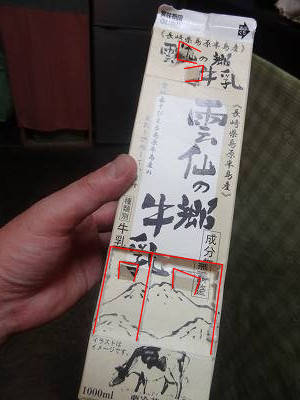 《長崎県島原半島産》
雲仙の郷
牛乳
《長崎県島原半島産》
雲仙の郷
牛乳
種類別 牛乳
成分無調整
イラストは
イメージです。
1000ml